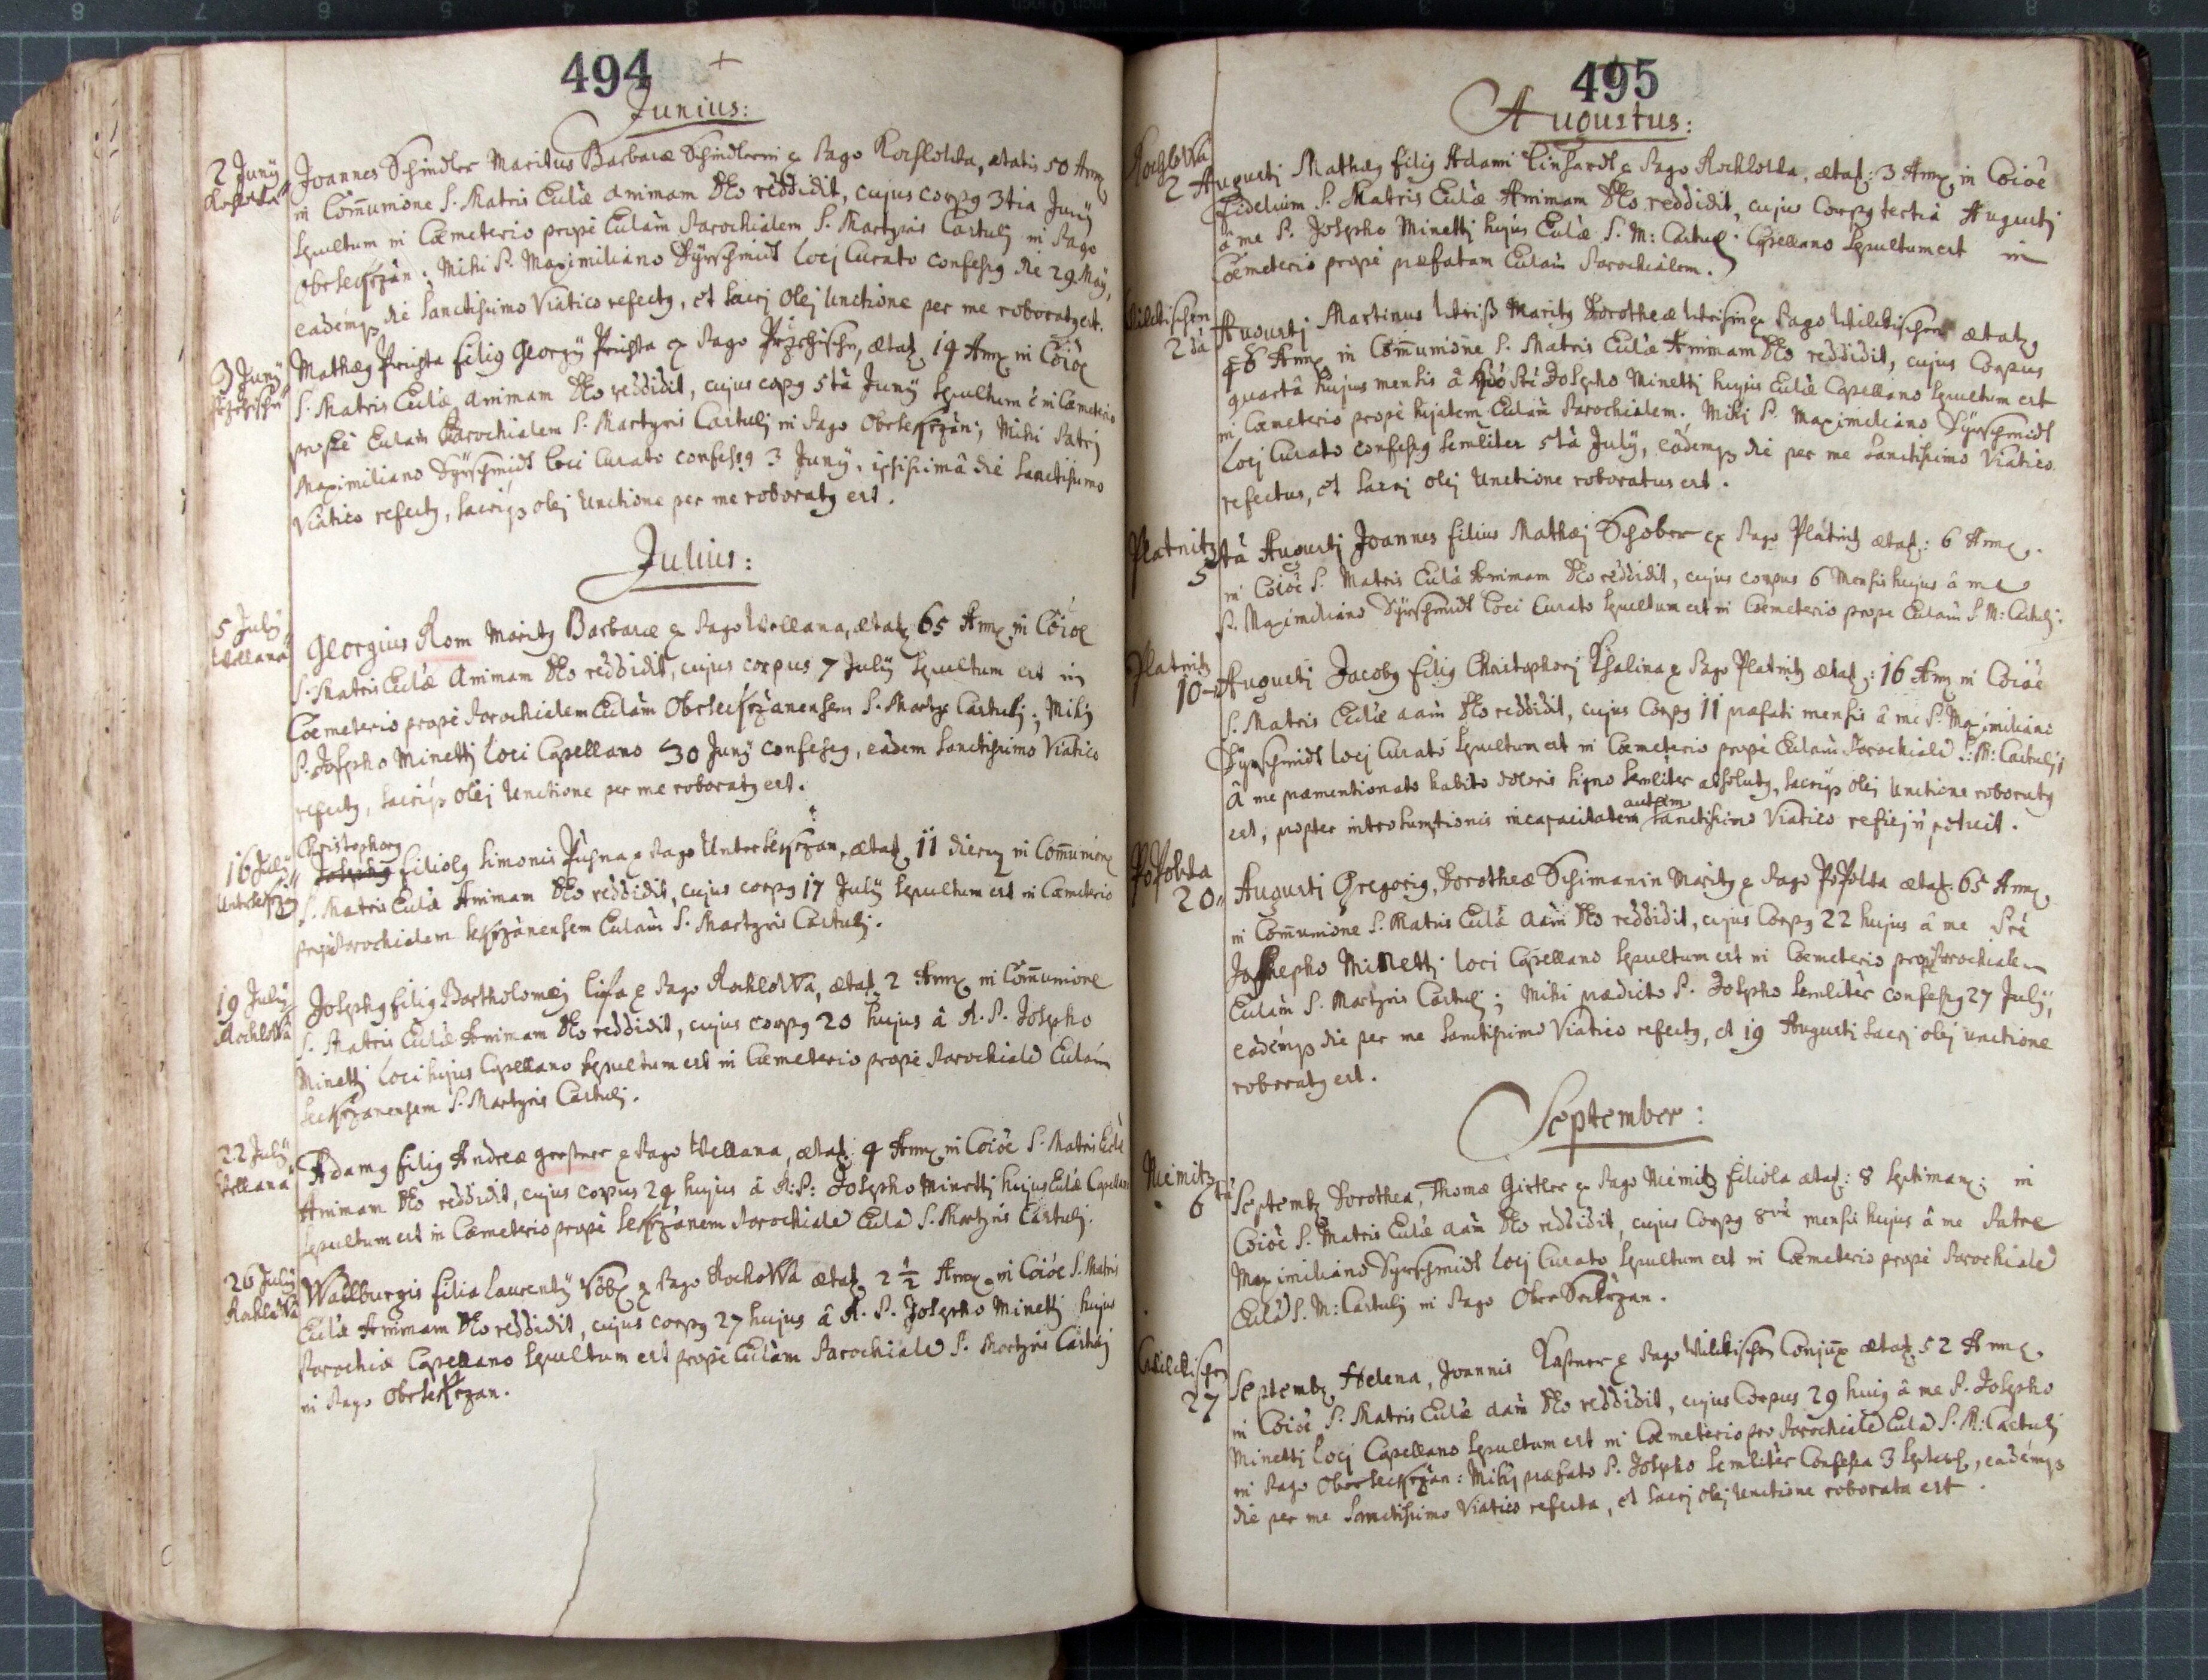 494
Junius:
2 Junÿ
Joannes Schindler Maritus Barbaræ Schindlerin ex Pago Rochlowa, ætatis 50 Annor.
in Com̄unione S. Matris Eccl̃æ animam Deo reddidit, cujus corpus 3tia Junÿ
sepultum in Cœmeterio propè Eccl̃am Parochialem S. Martyris Castulj in Pago
Obersekrzan: Mihi P. Maximiliano Dÿrschmidt Locj Curato confessus die 29 Maÿ,
eademq̃ die Sanctissimo Viatico refectus, et Sacrj Olej Unctione per me roboratus est.
3 Junÿ
Mathæus filius Georgÿ ex Pago ætat. 14 Annor. in Cōiōe
S. Matris Eccl̃æ animam Deo reddidit, cujus corpus 5tà Junÿ sepultum è in Cœmeterio
propè Eccl̃am Parochialem S. Martyris Castulj in Pago Obersekrzan; Mihi Patrj
Maximiliano Dÿrschmidt loci Curato confessus 3 Junÿ, ipsissimâ die Sanctissimo
Viatico refectus, Sacriq̃ olej Unctione per me roboratus est.
Julius:
5 Julÿ
Wellana
Georgius Rom Maritus Barbaræ ex Pago Wellana, ætat. 65 Annor. in Cōiōe
S. Matris Eccl̃æ Animam Deo reddidit, cujus corpus 7 Julÿ sepultum est in
Cœmeterio propè Parochialem Eccl̃am Obersekrzànensem S. Martyris Castulj; Mihj
P. Josepho Minettj Loci Capellano 30 Junÿ confessus, eâdem Sanctissimo Viatico
refectus, Sacriq̃ Olej Unctione per me roboratus est.
16 Julÿ
Untersekrzan
Christophorus
Josephus filiolus Simonis ex Pago Untersekrzan, ætat. 11 dierum in Com̄unione
S. Matris Eccl̃æ Animam Deo reddidit, cujus corpus 17 Julÿ sepultum est in Cœmeterio
propè Parochialem Sekrzànensem Eccl̃am S. Martyris Castulj.
19 Julÿ
Rochlowa
Josephus filius Bartholomæj ex Pago Rochlowa, ætat. 2 Annor. in Com̄unione
S. Matris Eccl̃æ Animam Deo reddidit, cujus corpus 20 hujus â R. P. Josepho
Minettj Loci hujus Capellano sepultum est in Cœmeterio propè Parochialẽ Eccl̃am
Sekrzanensem S. Martyris Castulj.
22 Julÿ
Wellana
Adamus filius Andreæ gerstner ex Pago Wellana, ætat: 4 Annor. in Cōiōe S. Matris Eccl̃æ
Animam Deo reddidit, cujus corpus 24 hujus à R: P: Josepho Minettj hujus Eccl̃æ Capellano
sepultum est in Cœmeterio propè Sekrzànem Parochialẽ Eccl̃ã S. Martyris Castulj.
26 Julÿ
Rochlowa
Wallburgis filia Laurentÿ ex Pago Rochowa ætat. 2 1/2 Annor. in Cōiōe S. Matris
Eccl̃æ Animam Deo reddidit, cujus corpus 27 hujus â R. P. Josepho Minettj hujus
Parochiæ Capellano sepultum est propè Eccl̃am Parochialẽ S. Martyris Castulj
in Pago Obersekrzan.
495
Augustus:
Rochlowa
2 Augustj Mathæus filius Adami Linhardt ex Pago Rochlowa, ætat: 3 Annor. in Cōiōe
Fidelium S. Matris Eccl̃æ Animam Deo reddidit, cujus Corpus tertiâ Augustj
â me P. Josepho Minettj hujus Eccl̃æ S. M: Castulj Capellano sepultum est in
Cœmeterio propè præfatam Eccl̃am Parochialem.
Wilckischen
2dà Augustj Martinus Maritus Dorotheæ ex Pago Wilckischen ætat.
46 Annor. in Com̄unione S. Matris Eccl̃æ Animam Deo reddidit, cujus Corpus
quartâ hujus mensis â Josepho Minettj hujus Eccl̃æ Capellano sepultum est
in Cœmeterio propè hujatem Eccl̃am Parochialem. Mihj P. Maximiliano Dÿrschmidt
Locj Curato confessus semliter 5tà Julÿ, eâdemq̃ die per me Sanctissimo Viatico
refectus, et Sacrj olej Unctione roboratus est.
Platnitz
5tà Augustj Joannes filius Mathæj Schober ex Pago Platnitz ætat: 6 Annor.
in Cōiōe S. Matris Eccl̃æ Animam Deo reddidit, cujus corpus 6 Mensis hujus â me
P. Maximiliano Dÿrschmidt Loci Curato sepultum est in Cœmeterio prope Eccl̃am S. M: Castulj.
Platnitz
10 Augustj Jacobus filius Christophorj ex Pago Platnitz ætat: 16 Annor. in Cōiōe
S. Matris Eccl̃æ aam̃ Deo reddidit, cujus Corpus 11 præfati mensis â me P. Maximiliano
Dÿrschmidt locj Curato sepultum est in Cœmeterio propè Eccl̃am Parochialẽ S: M: Castulj;
â me præmentionato habito doloris signo semliter absolutus, Sacriq̃ olej Unctione roboratus
est, propter intrò sumptionis incapacitatem autem Sanctissimo Viatico reficj ñ potuit.
20 Augusti Gregorius, Dorotheæ Schimanin Maritus ex Pago ætat: 65 Annor.
in Com̄unione S. Matris Eccl̃æ aam̃ Deo reddidit, cujus Corpus 22 hujus â me
Josepho Minettj loci Capellano sepultum est in Cœmeterio propè Parochialem
Eccl̃am S. Martyris Castulj; Mihi prædicto P. Josepho semliter confessus 27 Julÿ,
eadémq̃ die per me Sanctissimo Viatico refectus, et 19 Augusti Sacrj olej unctione
roboratus est.
September:
Niemitz
6tà Septembr. Dorothea, Thomæ Girtler ex Pago Niemitz filiola ætat: 8 Septiman: in
Cōiōe S. Matris Eccl̃æ aam̃ Deo reddidit, cujus Corpus 8và mensis hujus â me Patre
Maximiliano Dÿrschmidt Locj Curato sepultum est in Cœmeterio propè Parochialẽ
Eccl̃ã S. M: Castulj in Pago Obersekrzan.
Wilckischen
27 Septembr. Helena, Joannis Kastner ex Pago Wilckischen Conjux ætat. 52 Annor.
in Cōiōe S. Matris Eccl̃æ aam̃ Deo reddidit, cujus Corpus 29 hujus â me P. Josepho
Minettj Locj Capellano sepultum est in Cœmeterio pro Parochialẽ Eccl̃ã S. M: Castulj
in Pago Obersekrzan: Mihj præfato P. Josepho Semlitèr Confessa 3 Septemb, eadémq̃
die per me Sanctissimo Viatico refecta, et Sacrj olej Unctione roborata est.